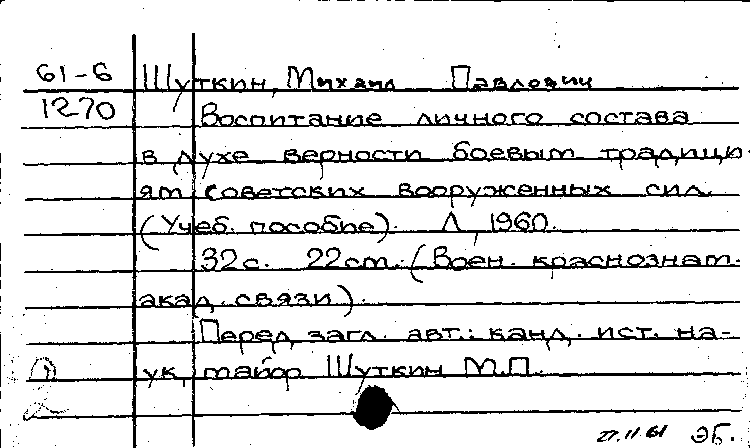 61-6 Шуткин, Михаил Павлович
1270 Воспитание личного состава
в духе верности боевым традици
ям советских вооруженных сил.
(Учеб. пособие). Л, 1960.
32с. 22см. (Воен. краснознам.
акад. связи).
Перед загл. авт.: канд. ист. на-
ук, майор Шуткин М.П.
2
27.11.61 ЭБ.